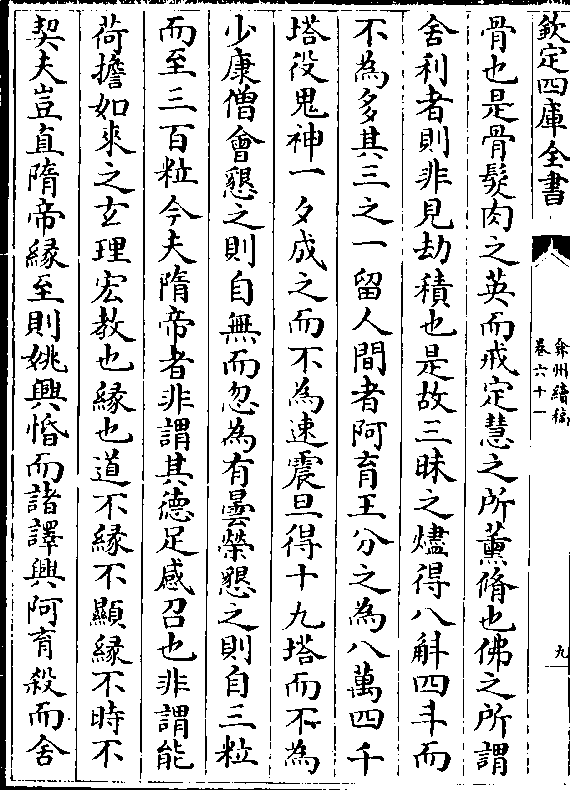 欽定四庫全書
弇州續稿
卷六十一
九
骨也是骨髮肉之英而戒定慧之所薰脩也佛之所謂
舍利者則非見劫積也是故三昧之燼得八斛四斗而
不為多其三之一留人間者阿育王分之為八萬四千
塔役鬼神一夕成之而不為速震旦得十九塔而不為
少康僧會懇之則自無而忽為有曇榮懇之則自三粒
而至三百粒今夫隋帝者非謂其德足感召也非謂能
荷擔如來之玄理宏教也緣也道不緣不顯緣不時不
契夫豈直隋帝緣至則姚興惛而諸譯興阿育殺而舍